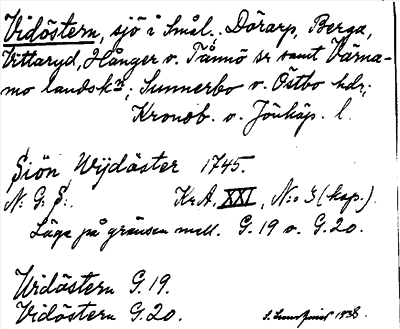 Vidöstern, sjö i Smål. Dörarp, Berga,
Vittaryd, Hånger o. Tånnö sr samt Värna-
mo landskn; Sunnerbo o. Östbo hdr;
Kronob. o. Jönköp. l.
Siön Wijdöster 1745.
N: G: S:. Kr A. XXI, N:o 3 (kop.).
Läge på gränsen mell. G.19 o. G.20.
Widöstern G.19.
Vidöstern G.20. 1938